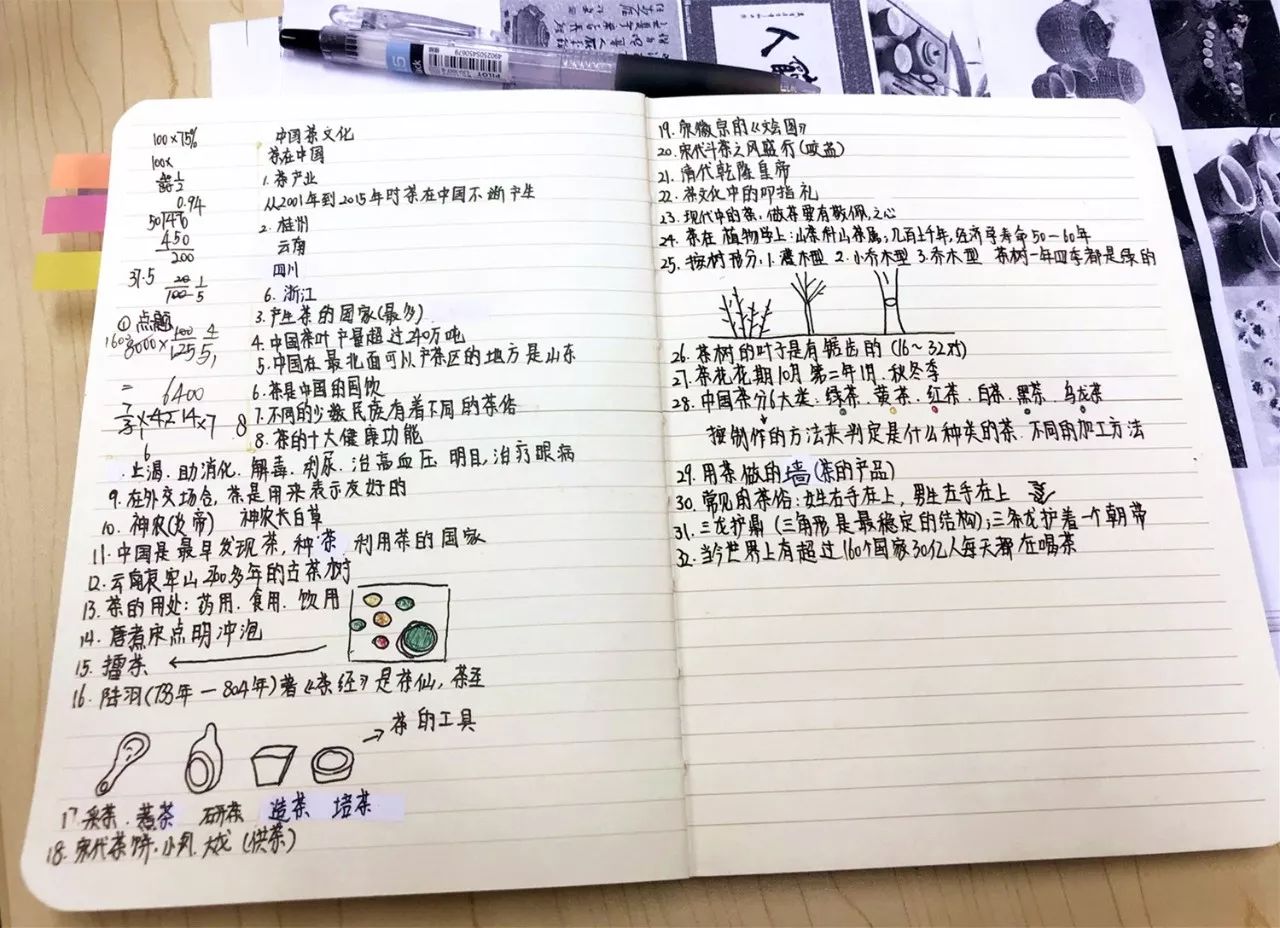 100×75%
100×
1/2
0.94
50)476
450
200
37.5 20/100 1/5
①点题
8000×100/125 4/5
=6400
7/3×42 14×7
8
6
中国茶文化
茶在中国
1.茶产业
从2001年到2015年时茶在中国不断产生
2.桂州
云南
四川
6.浙江
3.产生茶的国家(最多)
4.中国茶叶产量超过240万吨
5.中国在最北面可以产茶区的地方是山东
6.茶是中国的国饮
7.不同的少数民族有着不同的茶俗
8.茶的十大健康功能
.止渴.助消化.解毒.利尿.治高血压 明目,治疗眼病
9.在外交场合,茶是用来表示友好的
10.神农(炎帝) 神农长白草
11.中国是最早发现茶,种茶,利用茶的国家
12.云南哀牢山2700多年的古茶树
13.茶的用处:药用.食用.饮用
14.唐煮宋点明冲泡
15.擂茶
16.陆羽(733年—804年)著《茶经》是茶仙,茶圣
茶的工具
17.采茶.蒸茶 研茶 造茶 培茶
18.宋代茶饼.小凤.大龙(供茶)
19.宋徽宗的《文会图》
20.宋代斗茶之风盛行(咬盏)
21.清代乾隆皇帝
22.茶文化中的叩指礼
23.现代中的茶.做茶要有敬佩之心
24.茶在植物学上:山茶科山茶属,几百上千年,经济学寿命50—60年
25.按树形分:1.灌木型 2.小乔木型 3.乔木型 茶树一年四季都是绿的
26.茶树的叶子是有锯齿的(16~32对)
27.茶花花期10月 第二年1月.秋冬季
28.中国茶分6大类:绿茶.黄茶.红茶.白茶.黑茶.乌龙茶
按制作的方法来判定是什么种类的茶.不同的加工方法
29.用茶做的墙(茶的产品)
30.常见的茶俗:女生右手在上,男生左手在上
31.三龙护鼎(三角形是最稳定的结构);三条龙护着一个朝帝
32.当今世界上有超过160个国家30亿人每天都在喝茶
PILOT